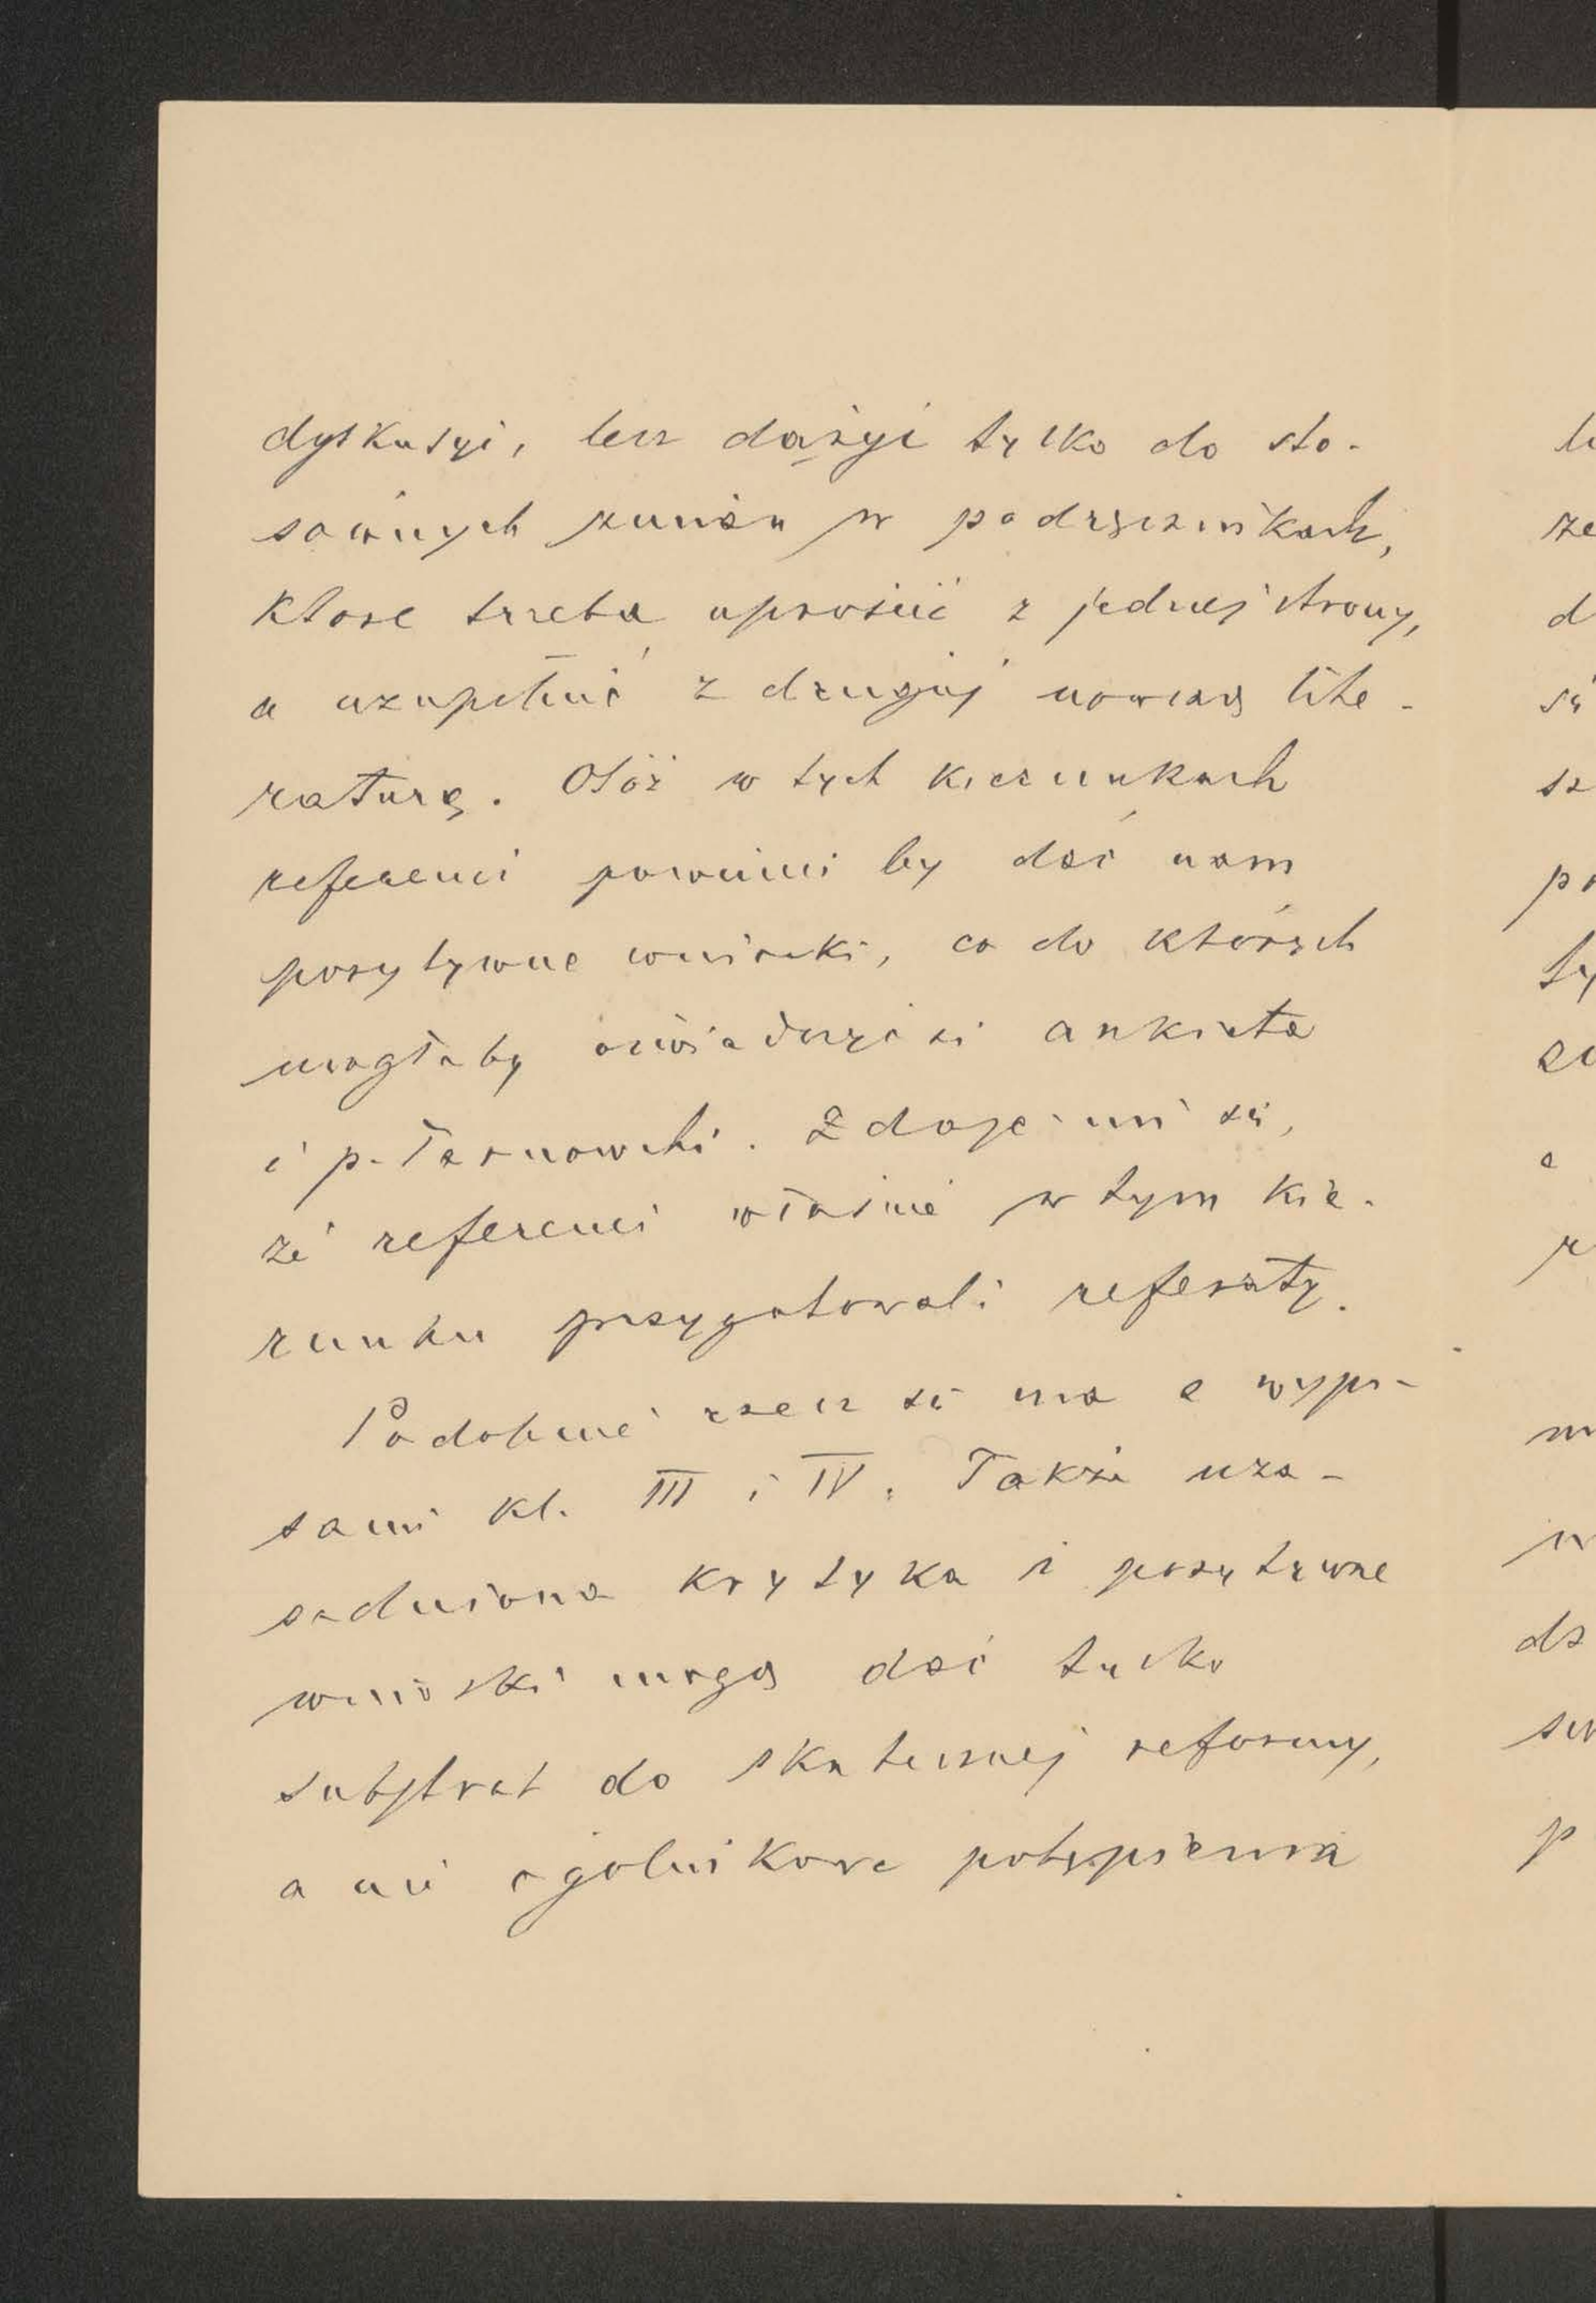 dyskusyi, lecz dążyć tylko do sto-
sownych zmian w podręcznikach,
które trzeba uprościć z jednej strony,
a uzupełnić z drugiej nowszą lite-
raturą. Otóż w tych kierunkach
referenci powinni by dać nam
pozytywne wnioski, co do których
mogłaby oświadczyć się ankieta
i p. Tarnowski. Zdaje mi się,
że referenci właśnie w tym kie-
runku przygotowali referaty.
Podobnie rzecz się ma z wypi-
sami kl. III i IV. Także uza-
sadniona krytyka i pozytywne
wnioski mogą dać tylko
substrat do skutecznej reformy,
a nie ogólnikowe potępienia